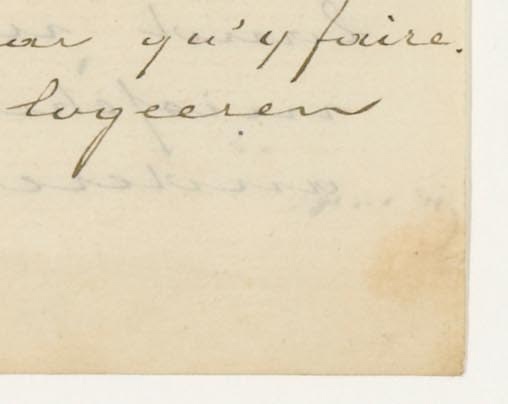 ar qu'y faire.
logeeren